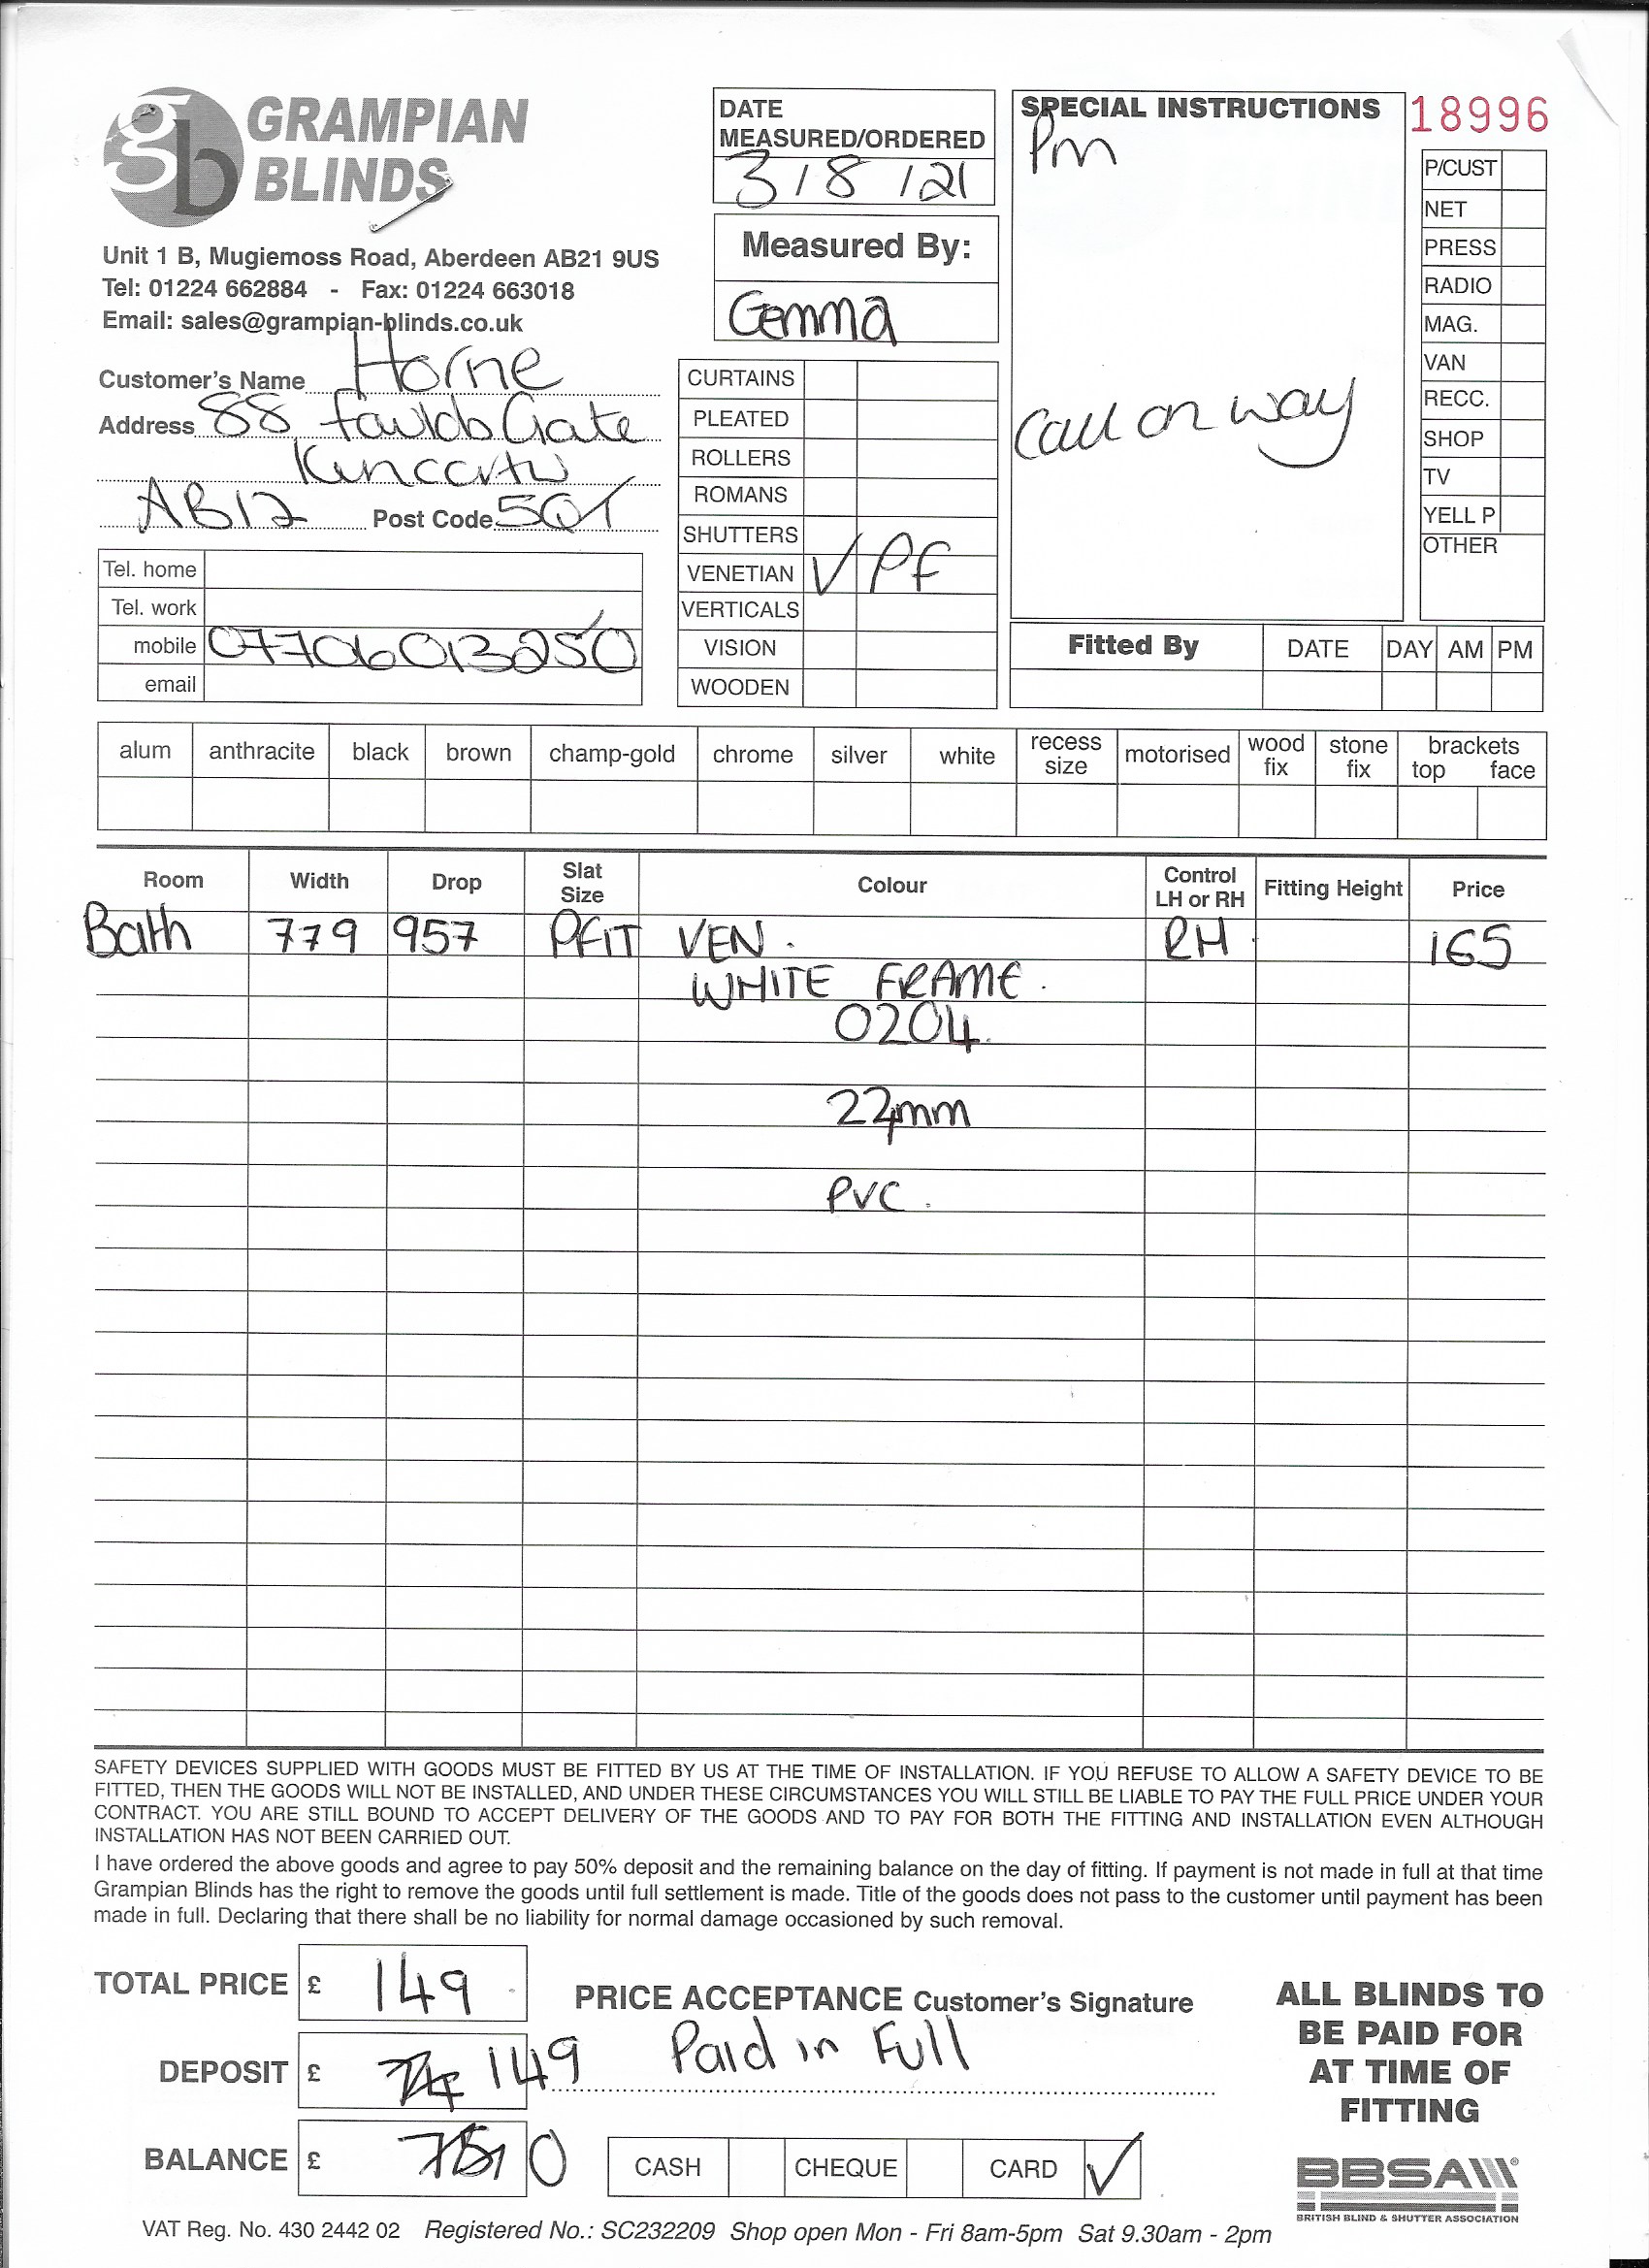 gb GRAMPIAN
BLINDS
Unit 1 B, Mugiemoss Road, Aberdeen AB21 9US
Tel: 01224 662884 - Fax: 01224 663018
Email: sales@grampian-blinds.co.uk
DATE
MEASURED/ORDERED
3/8/21
Measured By:
Gemma
SPECIAL INSTRUCTIONS
Pm
Call on way
18996
P/CUST
NET
PRESS
RADIO
MAG.
VAN
RECC.
SHOP
TV
YELL P
OTHER
Customer's Name Horne
Address 88 Faulds Gate
AB12 Post Code 5QT
Tel. home
Tel. work
mobile 07706013250
email
CURTAINS
PLEATED
ROLLERS
ROMANS
SHUTTERS
VENETIAN ✓ PF
VERTICALS
VISION
WOODEN
Fitted By DATE DAY AM PM
alum anthracite black brown champ-gold chrome silver white recess size motorised wood fix stone fix brackets top face
Room Width Drop Slat Size Colour Control LH or RH Fitting Height Price
Bath 779 957 PFIT VEN. RH 165
WHITE FRAME.
0204.
22mm
PVC.
SAFETY DEVICES SUPPLIED WITH GOODS MUST BE FITTED BY US AT THE TIME OF INSTALLATION. IF YOU REFUSE TO ALLOW A SAFETY DEVICE TO BE
FITTED, THEN THE GOODS WILL NOT BE INSTALLED, AND UNDER THESE CIRCUMSTANCES YOU WILL STILL BE LIABLE TO PAY THE FULL PRICE UNDER YOUR
CONTRACT. YOU ARE STILL BOUND TO ACCEPT DELIVERY OF THE GOODS AND TO PAY FOR BOTH THE FITTING AND INSTALLATION EVEN ALTHOUGH
INSTALLATION HAS NOT BEEN CARRIED OUT.
I have ordered the above goods and agree to pay 50% deposit and the remaining balance on the day of fitting. If payment is not made in full at that time
Grampian Blinds has the right to remove the goods until full settlement is made. Title of the goods does not pass to the customer until payment has been
made in full. Declaring that there shall be no liability for normal damage occasioned by such removal.
TOTAL PRICE £ 149
PRICE ACCEPTANCE Customer's Signature
DEPOSIT £ 149 Paid in Full
BALANCE £ 0
CASH CHEQUE CARD ✓
ALL BLINDS TO
BE PAID FOR
AT TIME OF
FITTING
BBSA
BRITISH BLIND & SHUTTER ASSOCIATION
VAT Reg. No. 430 2442 02 Registered No.: SC232209 Shop open Mon - Fri 8am-5pm Sat 9.30am - 2pm